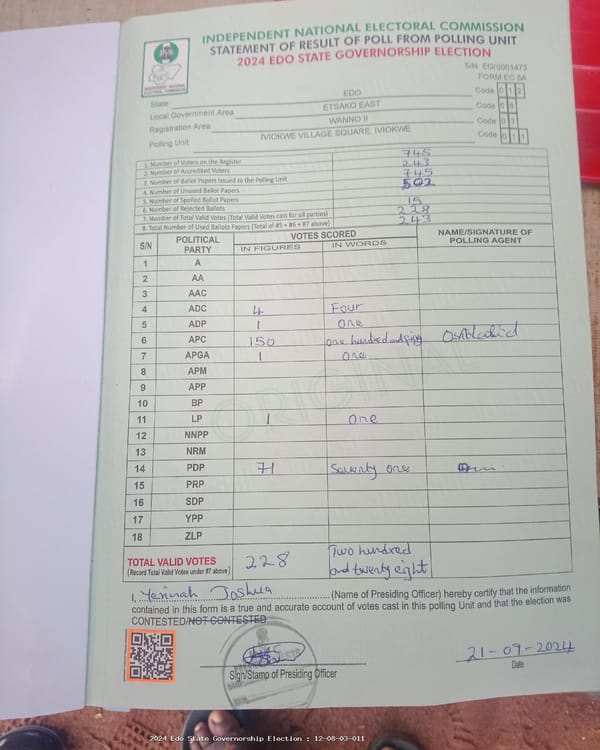 INDEPENDENT NATIONAL ELECTORAL COMMISSION
STATEMENT OF RESULT OF POLL FROM POLLING UNIT
2024 EDO STATE GOVERNORSHIP ELECTION
S/N: EG/0001473
FORM EC 8A
State EDO Code 0 1 2
Local Government Area ETSAKO EAST Code 0 8
Registration Area WANNO II Code 0 3
Polling Unit IVIOKWE VILLAGE SQUARE, IVIOKWE Code 0 1 1
1. Number of Voters on the Register 745
2. Number of Accredited Voters 243
3. Number of Ballot Papers Issued to the Polling Unit 745
4. Number of Unused Ballot Papers 502
5. Number of Spoiled Ballot Papers
6. Number of Rejected Ballots 15
7. Number of Total Valid Votes (Total Valid Votes cast for all parties) 228
8. Total Number of Used Ballots Papers (Total of #5 + #6 + #7 above) 243
S/N POLITICAL PARTY VOTES SCORED NAME/SIGNATURE OF POLLING AGENT
IN FIGURES IN WORDS
1 A
2 AA
3 AAC
4 ADC 4 Four
5 ADP 1 one
6 APC 150 one hundred and fifty
7 APGA 1 one
8 APM
9 APP
10 BP
11 LP 1 one
12 NNPP
13 NRM
14 PDP 71 Seventy one
15 PRP
16 SDP
17 YPP
18 ZLP
ORIGINAL
TOTAL VALID VOTES 228 Two hundred
(Record Total Valid Votes under #7 above) and twenty eight
I, Joshua (Name of Presiding Officer) hereby certify that the information
contained in this form is a true and accurate account of votes cast in this polling Unit and that the election was
CONTESTED/NOT CONTESTED
21-09-2024
Sign/Stamp of Presiding Officer Date
2024 Edo State Governorship Election : 12-08-03-011